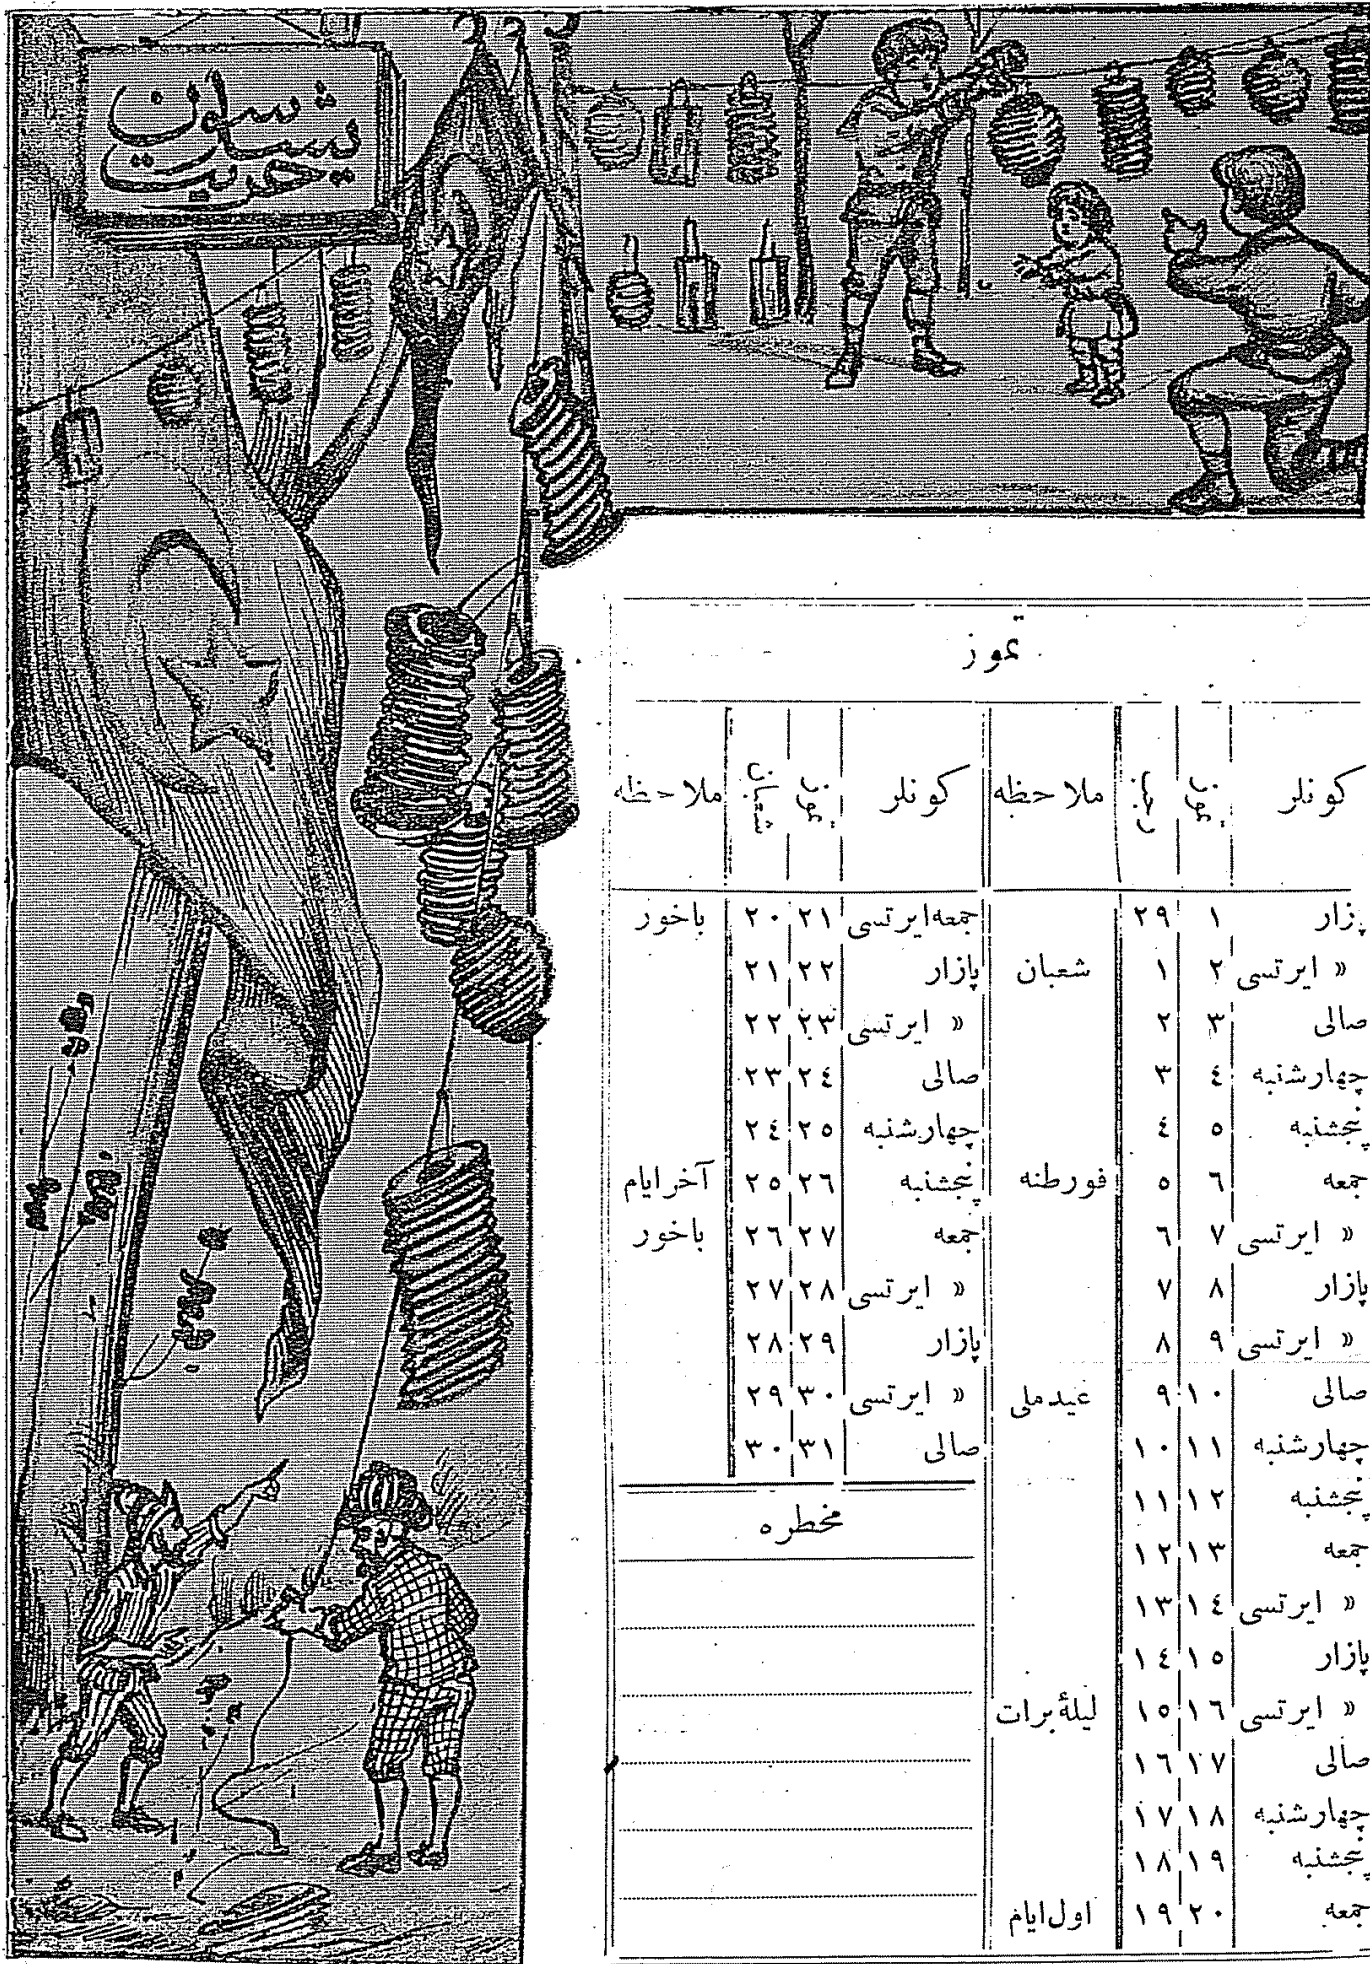 یشاسون
حریت
تموز
كونلر تموز رجب ملاحظه
پازار ١ ٢٩
« ايرتسى ٢ ١ شعبان
صالى ٣ ٢
چهارشنبه ٤ ٣
پنجشنبه ٥ ٤
جمعه ٦ ٥ فورطنه
« ايرتسى ٧ ٦
پازار ٨ ٧
« ايرتسى ٩ ٨
صالى ١٠ ٩ عيد ملى
چهارشنبه ١١ ١٠
پنجشنبه ١٢ ١١
جمعه ١٣ ١٢
« ايرتسى ١٤ ١٣
پازار ١٥ ١٤
« ايرتسى ١٦ ١٥ ليلۀ برات
صالى ١٧ ١٦
چهارشنبه ١٨ ١٧
پنجشنبه ١٩ ١٨
جمعه ٢٠ ١٩ اول ايام
كونلر تموز شعبان ملاحظه
جمعه ايرتسى ٢١ ٢٠ باخور
پازار ٢٢ ٢١
« ايرتسى ٢٣ ٢٢
صالى ٢٤ ٢٣
چهارشنبه ٢٥ ٢٤
پنجشنبه ٢٦ ٢٥ آخر ايام
جمعه ٢٧ ٢٦ باخور
« ايرتسى ٢٨ ٢٧
پازار ٢٩ ٢٨
« ايرتسى ٣٠ ٢٩
صالى ٣١ ٣٠
مخطره